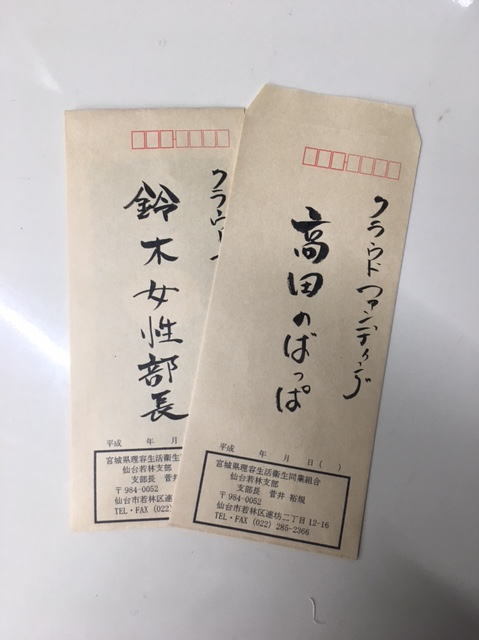 クラウドファンディング
高田のばっぱ
平成　年　月　日（　）
宮城県理容生活衛生同業組合
仙台若林支部
支部長　菅井　裕規
〒984-0052
仙台市若林区連坊二丁目12-16
TEL・FAX（022）285-2366
クラウド
鈴木女性部長
平成　年　月
宮城県理容生活衛生
仙台若林支部
支部長　菅井
〒984-0052
仙台市若林区連
TEL・FAX（022）